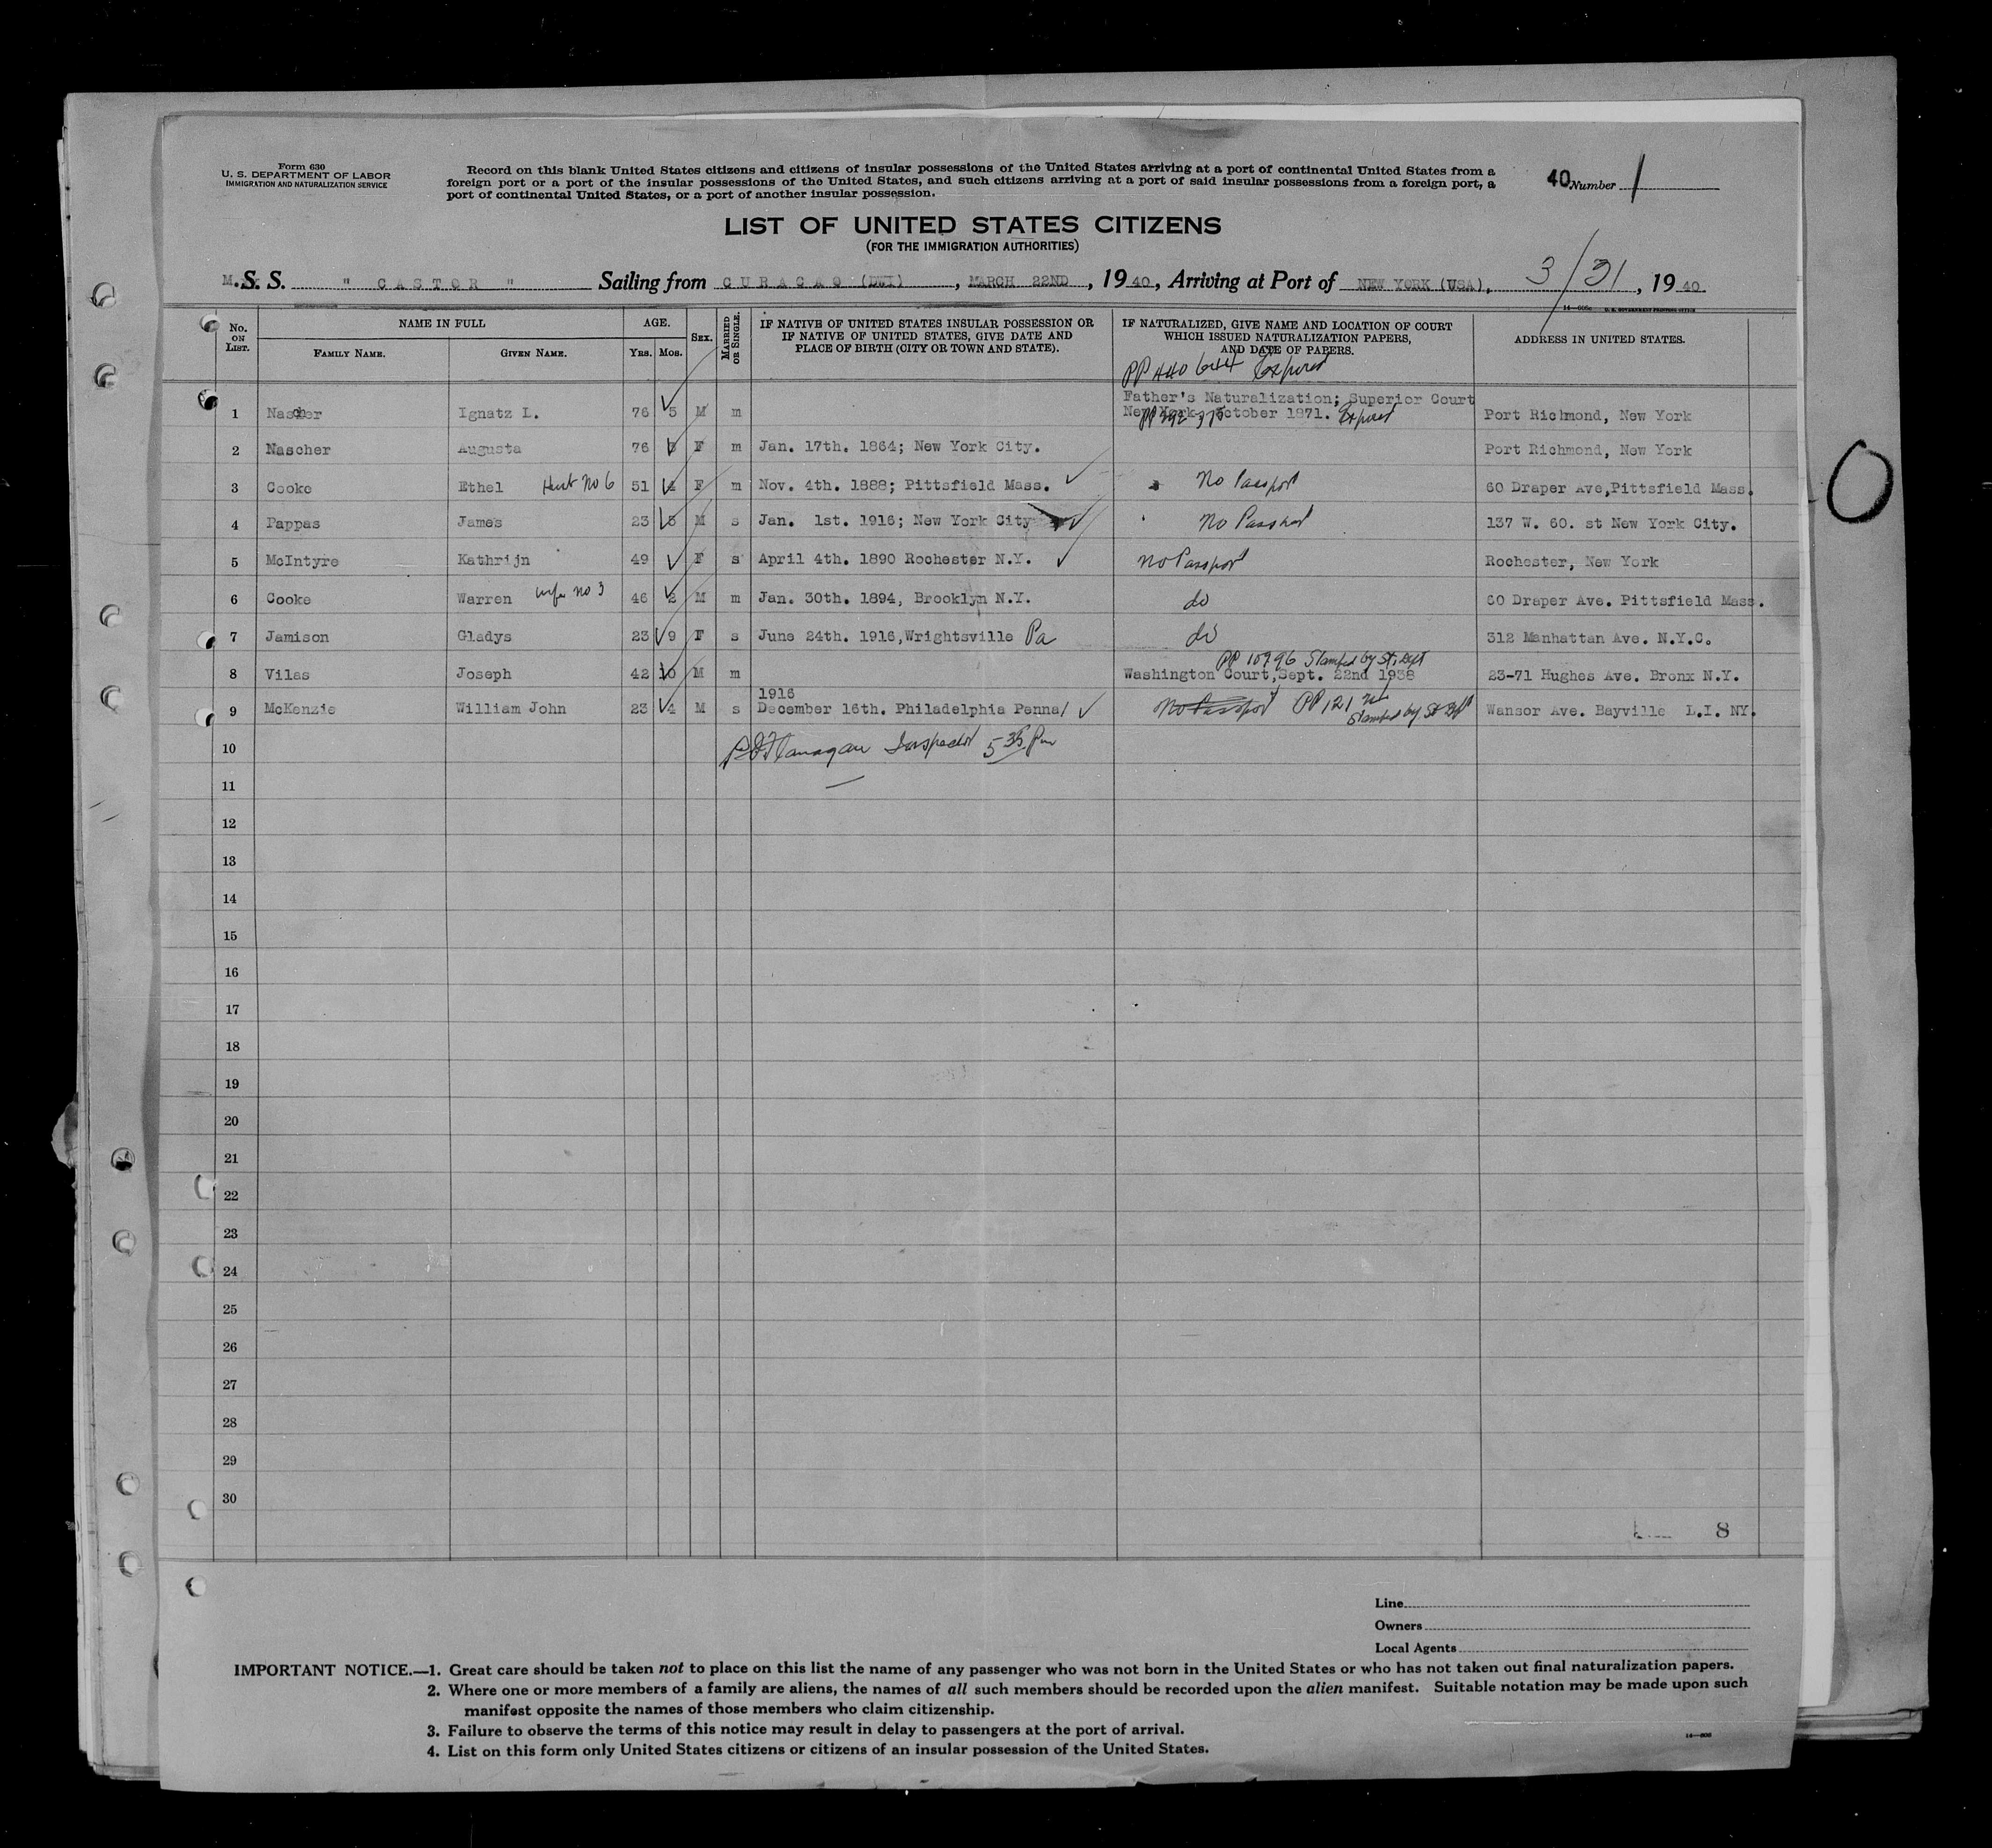 Form 630
U. S. DEPARTMENT OF LABOR
IMMIGRATION AND NATURALIZATION SERVICE
Record on this blank United States citizens and citizens of insular possessions of the United States arriving at a port of continental United States from a
foreign port or a port of the insular possessions of the United States, and such citizens arriving at a port of said insular possessions from a foreign port, a
port of continental United States, or a port of another insular possession.
40 Number 1
LIST OF UNITED STATES CITIZENS
(FOR THE IMMIGRATION AUTHORITIES)
M.S. S. " CASTOR " Sailing from CURACAO (DWI), MARCH 22ND, 1940, Arriving at Port of NEW YORK (USA), 3/31, 1940
No. ON LIST.
NAME IN FULL
FAMILY NAME.
GIVEN NAME.
AGE.
YRS. MOS.
SEX.
MARRIED OR SINGLE.
IF NATIVE OF UNITED STATES INSULAR POSSESSION OR
IF NATIVE OF UNITED STATES, GIVE DATE AND
PLACE OF BIRTH (CITY OR TOWN AND STATE).
IF NATURALIZED, GIVE NAME AND LOCATION OF COURT
WHICH ISSUED NATURALIZATION PAPERS,
AND DATE OF PAPERS.
ADDRESS IN UNITED STATES.
PP Expired
Father's Naturalization; Superior Court
1 Nascher Ignatz L. 76 5 M m New York October 1871. Port Richmond, New York
PP Expired
2 Nascher Augusta 76 F m Jan. 17th. 1864; New York City. Port Richmond, New York
3 Cooke Ethel No 6 51 4 F m Nov. 4th. 1888; Pittsfield Mass. No Passport 60 Draper Ave,Pittsfield Mass.
4 Pappas James 23 M s Jan. 1st. 1916; New York City No Passport 137 W. 60. st New York City.
5 McIntyre Kathrijn 49 F s April 4th. 1890 Rochester N.Y. No Passport Rochester, New York
6 Cooke Warren wife no 3 46 2 M m Jan. 30th. 1894, Brooklyn N.Y. do 60 Draper Ave. Pittsfield Mass.
7 Jamison Gladys 23 9 F s June 24th. 1916,Wrightsville Pa do 312 Manhattan Ave. N.Y.C.
PP 10996 Stamped by St. Dept
8 Vilas Joseph 42 10 M m Washington Court,Sept. 22nd 1938 23-71 Hughes Ave. Bronx N.Y.
1916
9 McKenzie William John 23 4 M s December 16th. Philadelphia Penna No Passport PP 121 Wansor Ave. Bayville L.I. NY.
Stamped by St Dept
10 Flanagan Inspector 5 35 Pm
11
12
13
14
15
16
17
18
19
20
21
22
23
24
25
26
27
28
29
30
8
Line
Owners
Local Agents
IMPORTANT NOTICE.—1. Great care should be taken not to place on this list the name of any passenger who was not born in the United States or who has not taken out final naturalization papers.
2. Where one or more members of a family are aliens, the names of all such members should be recorded upon the alien manifest. Suitable notation may be made upon such
manifest opposite the names of those members who claim citizenship.
3. Failure to observe the terms of this notice may result in delay to passengers at the port of arrival.
4. List on this form only United States citizens or citizens of an insular possession of the United States.